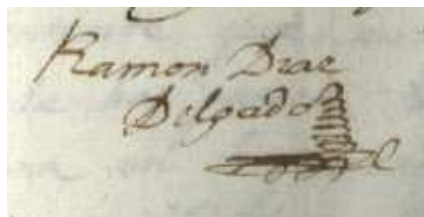 Ramon Diae
Delgado